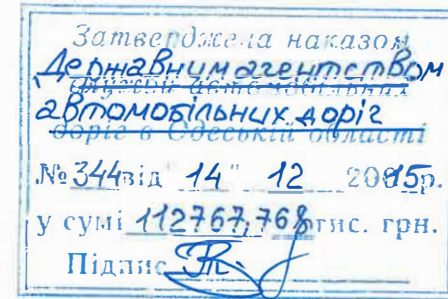 Затверджена наказом
Державним агентством
автомобільних доріг
доріг в Одеській області
№ 344 від 14 " 12 2015р.
у сумі 112767,768 тис. грн.
Підпис